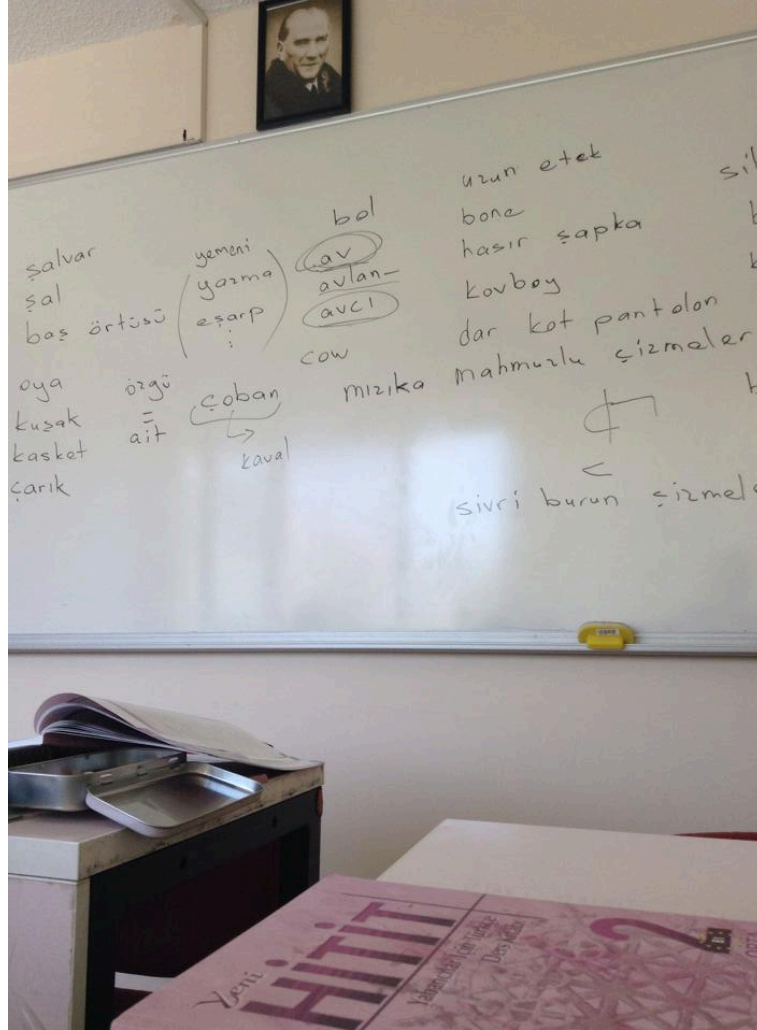 şalvar
şal
baş örtüsü
yemeni
yazma
eşarp
:
bol
av
avlan-
avcı
cow
uzun etek
bone
hasır şapka
kovboy
dar kot pantolon
mahmuzlu çizmeler
mızıka
oya
kuşak
kasket
çarık
özgü
=
ait
çoban
kaval
sivri burun çizmel
Yeni
HİTİT
2
Yabancılar İçin Türkçe
Ders Kitabı
ORTA